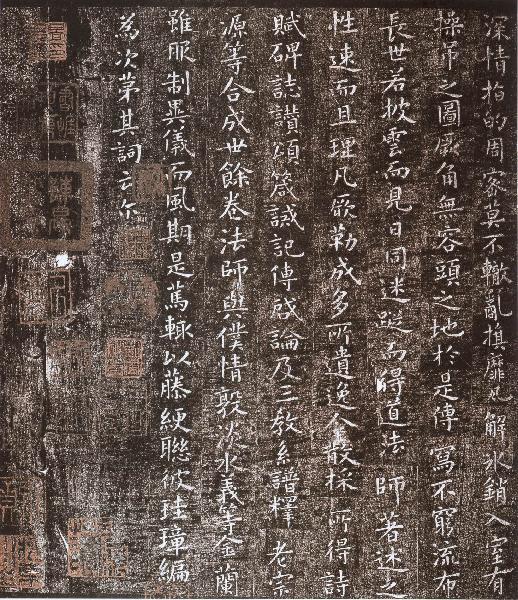 深情指的周密莫不轍亂旗靡瓦解氷銷入室有
操矛之圖鹿角無容頭之地於是傳寫不窮流布
長世若披雲而見日同迷蹤而得道法師著述之
性速而且理凡厥勒成多所遺逸今散採所得詩
賦碑誌讚頌箴誡記傳啓論及三教系譜釋老宗
源等合成世餘卷法師與僕情敦淡水義等金蘭
雖服制異儀而風期是篤輒以藤緶聯彼珪璋編
為次第其詞云尓